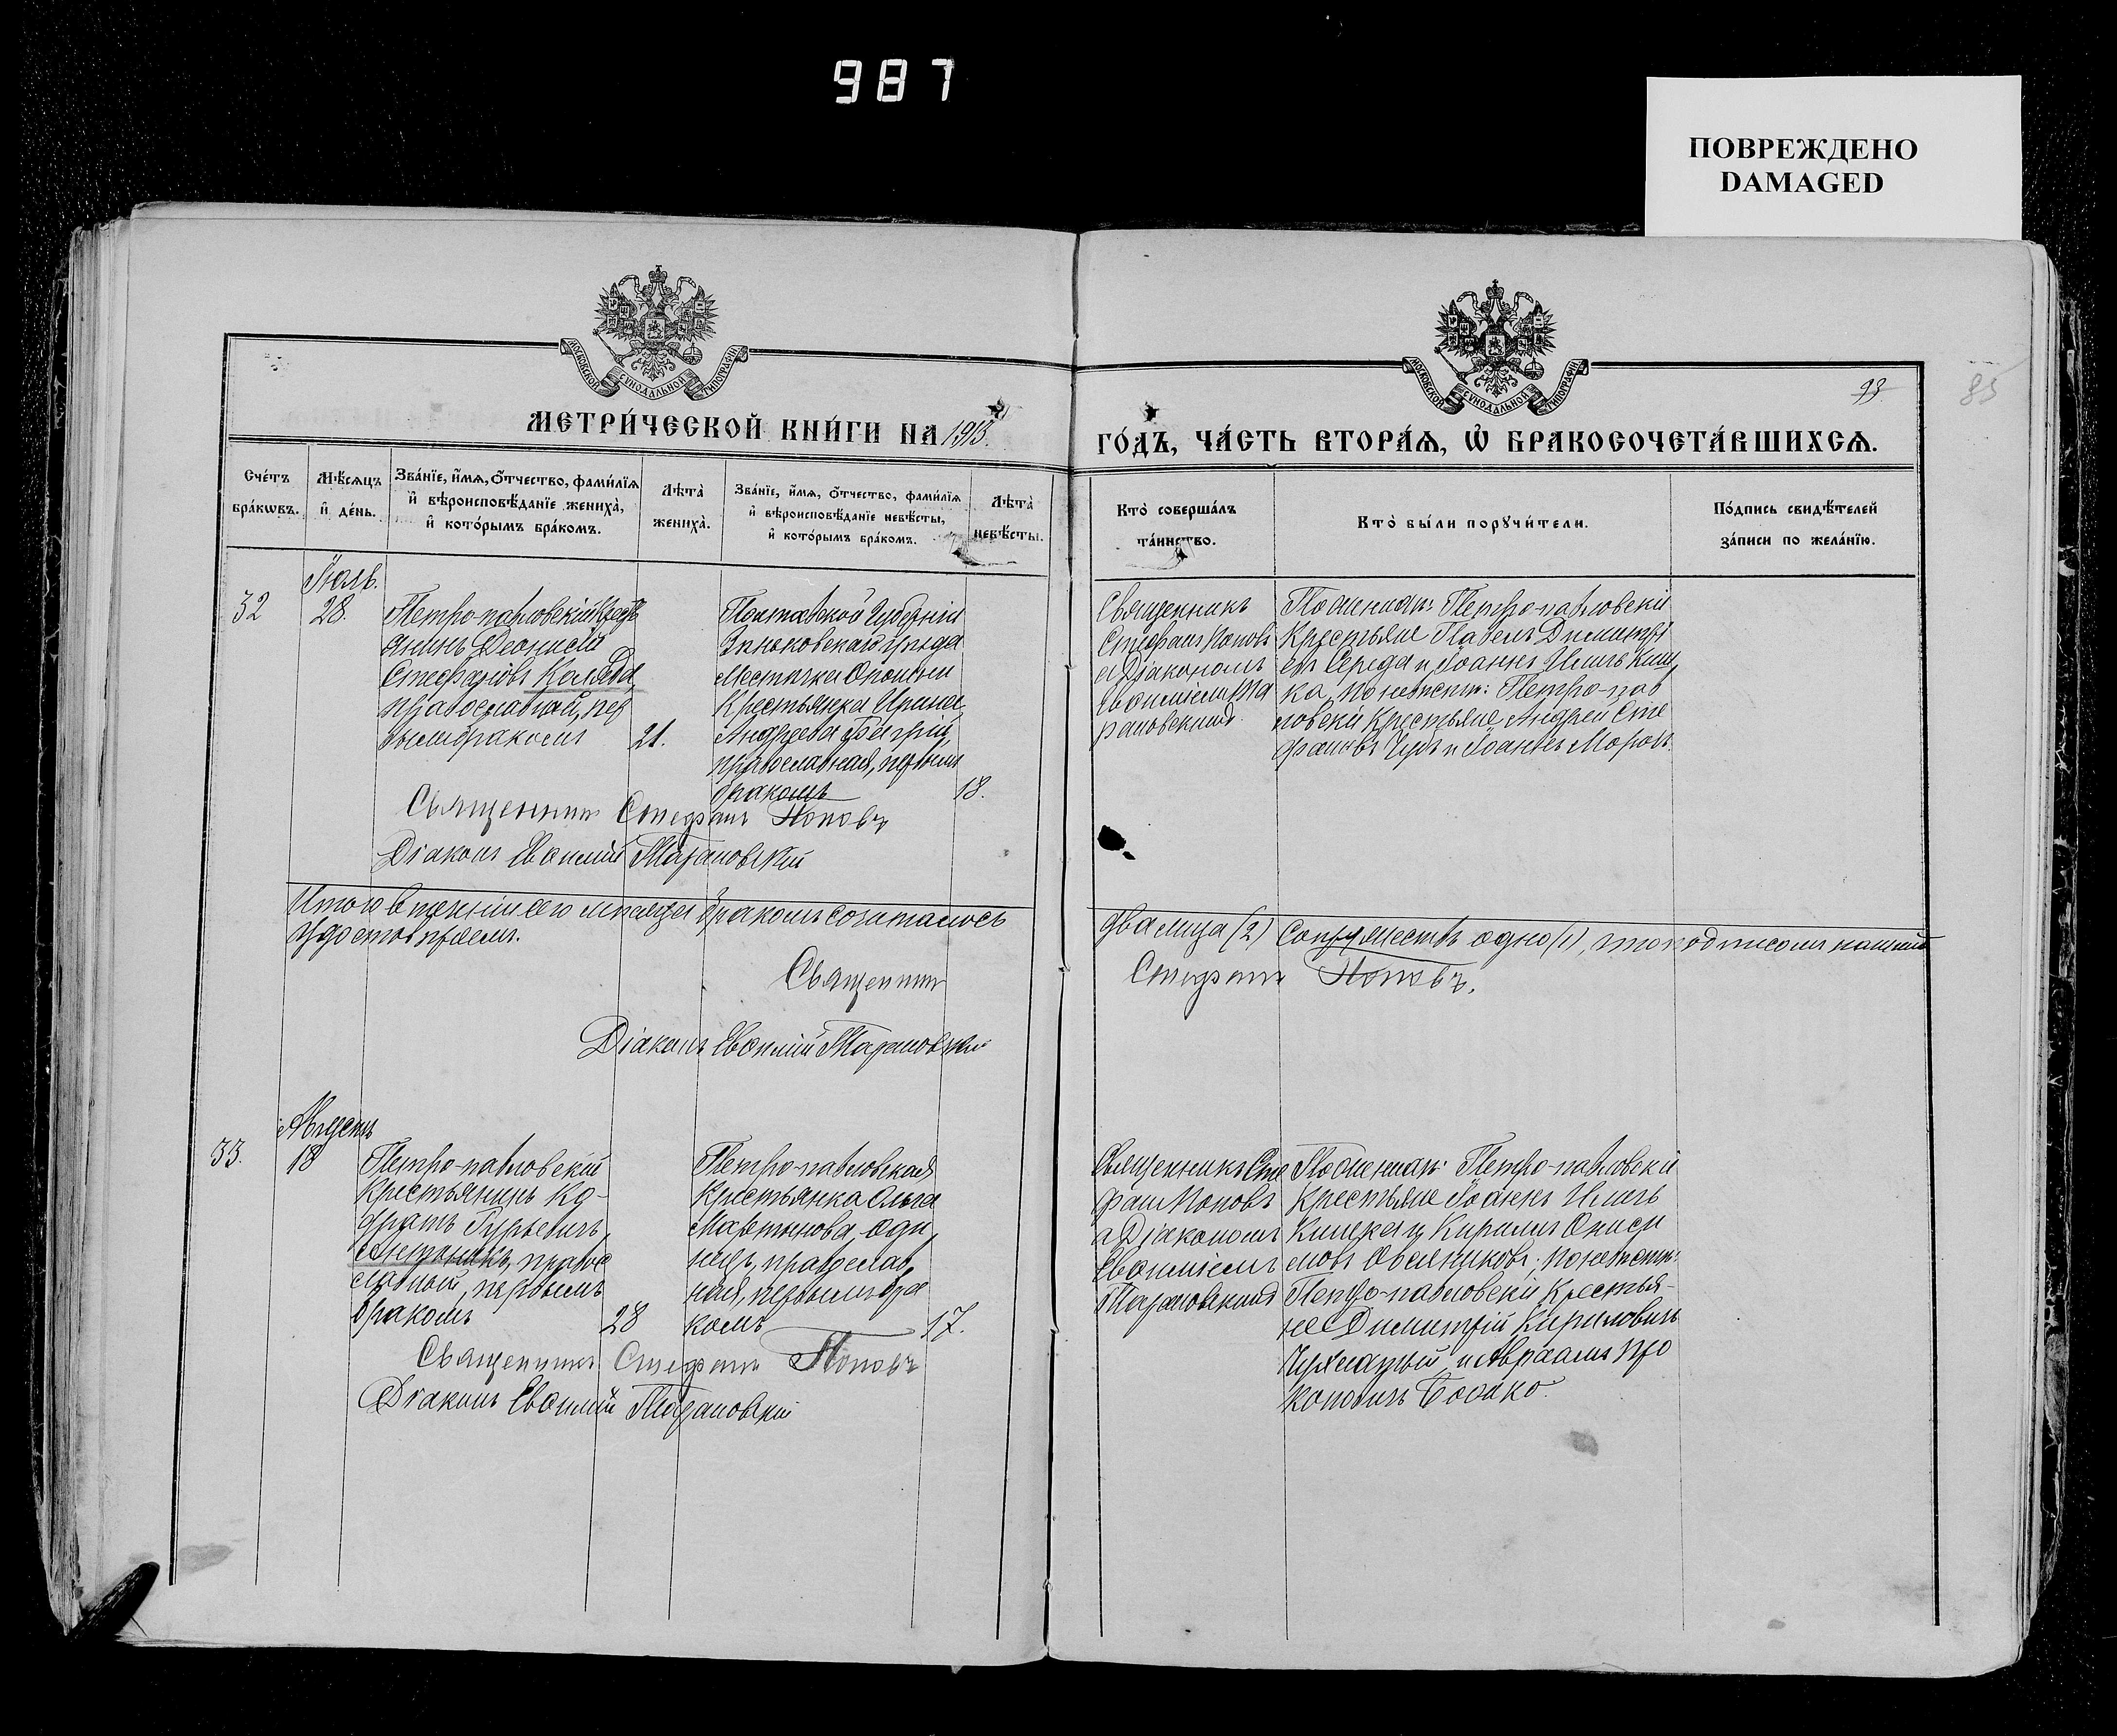 987
ПОВРЕЖДЕНО
DAMAGED
МОСКОВСКОЙ СѴНОДАЛЬНОЙ ТИПОГРАФІИ
МОСКОВСКОЙ СѴНОДАЛЬНОЙ ТИПОГРАФІИ
93
85
МЕТРИ́ЧЕСКОЙ КНИ́ГИ НА 1913.
ГО́ДЪ, ЧА́СТЬ ВТОРА́Ѧ, Ѡ҆ БРАКОСОЧЕТА́ВШИХСѦ.
Сче́тъ бра́кѡвъ.
Мѣ́сѧцъ и҆ де́нь.
Зва́нїе, и҆́мѧ, ѻ҆́тчество, фами́лїѧ
и҆ вѣроисповѣ́данїе жениха̀,
и҆ кото́рымъ бра́комъ.
Лѣта̀ жениха̀.
Зва́нїе, и҆́мѧ, ѻ҆́тчество, фами́лїѧ
и҆ вѣроисповѣ́данїе невѣ́сты,
и҆ кото́рымъ бра́комъ.
Лѣта̀ невѣ́сты.
Кто̀ соверша́лъ та́инство.
Кто̀ бы́ли порꙋчи́тели.
По́дпись свидѣ́телей
за́писи по жела́нїю.
Іюль.
32
28.
Петро-павловскій крестья
анинъ Діонисій
Стефановъ Каляда,
православный, пер
вымъ бракомъ
21.
Полтавской губерніи
Зеньковскаго уѣзда
Мѣстечка Опошни
Крестьянка Ирина
Андреева
православная, первымъ
бракомъ
18.
Священникъ
Стефанъ Поповъ
с Діакономъ
Евѳиміемъ Та
рановскимъ.
По женихѣ: Петро-павловскіе
Крестьяне Павелъ Димитрі
евъ Середа и Іоаннъ Ильичъ Киш
ка, по невѣстѣ: Петро-пав
ловскіе крестьяне Андрей Сте
фановъ и Іоаннъ Морозъ.
Священникъ Стефанъ Поповъ
Діаконъ Евѳимій Тарановскій
Итого в теченіи сего мѣсяца бракомъ сочеталось
два лица (2) супружествъ одно (1), что подписомъ нашимъ
удостовѣряемъ.
Священникъ
Стефанъ Поповъ.
Діаконъ Евѳимій Тарановскій
Августъ
33.
18
Петро-павловскій
Крестьянинъ Ко-
дратъ Гурьевичъ
правос
лавный, первымъ
бракомъ
28
Петро-павловская
Крестьянка Ольга
Мартынова, Оди
нецъ, православ
ная, первымъ бра
комъ
17.
Священникъ Сте
фанъ Поповъ
с Діакономъ
Евѳиміемъ
Тарановскимъ
По женихѣ: Петро-павловскіе
Крестьяне Іоаннъ Ильичъ
Кишка и Кириллъ Ониси
мовъ Овсянниковъ; по невѣстѣ:
Петро-павловскіе крестья-
не Димитрій Кириловичъ
и Авраамъ Про
коповичъ Босако.
Священникъ Стефанъ Поповъ
Діаконъ Евѳимій Тарановскій